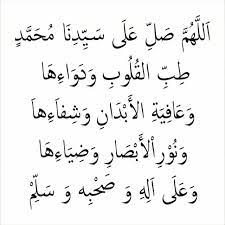 اَللّٰهُمَّ صَلِّ عَلَى سَيِّدِنَا مُحَمَّدٍ
طِبِّ القُلُوبِ وَدَوَاءِهَا
وَعَافِيَةِ الْأَبْدَانِ وَشِفَاءِهَا
وَنُوْرِ اْلأَبْصَارِ وَضِيَاءِهَا
وَعَلَى آلِهِ وَ صَحْبِهِ وَ سَلِّمْ